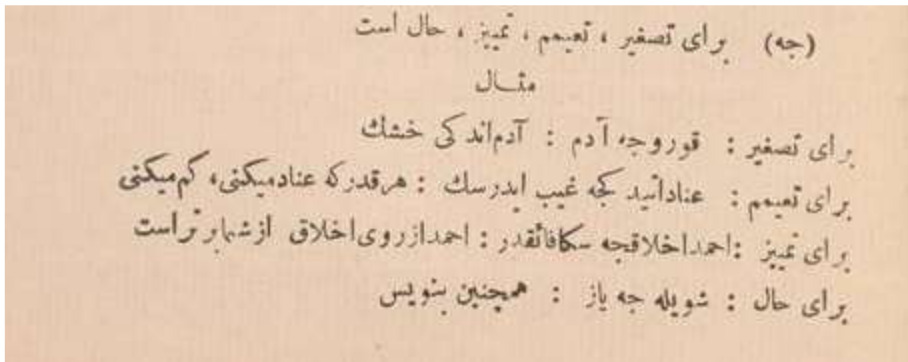 (جه) برای تصغیر ، تعیمم ، تمییز ، حال است
مثـال
برای تصغیر : قوروجه آدم : آدم‌اندکی خشك
برای تعیمم : عناداتید کجه غیب ایدرسك : هرقدرکه عنادمیکنی، کم‌میکنی
برای تمییز : احمداخلاقجه سکافائقدر : احمدازروی‌اخلاق ازشمابرتراست
برای حال : شویله جه یاز : همچنین بنویس